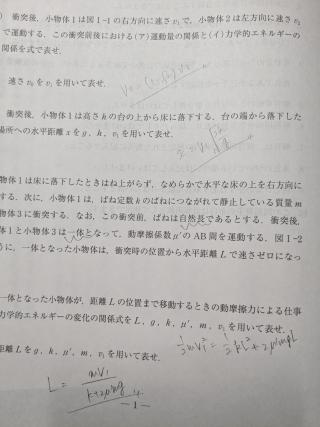 衝突後，小物体1は図1-1の右方向に速さv₁で，小物体2は左方向に速さv₂
で運動する．この衝突前後における(ア)運動量の関係と(イ)力学的エネルギーの
関係を式で表せ．
速さv₀をv₁を用いて表せ．
衝突後，小物体1は高さhの台の上から床に落下する．台の端から落下した
場所への水平距離xをg，h，v₁を用いて表せ．
物体1は床に落下したときはね上がらず，なめらかで水平な床の上を右方向に
する．次に，小物体1は，ばね定数kのばねにつながれて静止している質量m
物体3に衝突する．なお，この衝突前，ばねは自然長であるとする．衝突後，
体1と小物体3は一体となって，動摩擦係数μ'のAB間を運動する．図1-2
うに，一体となった小物体は，衝突時の位置から水平距離Lで速さゼロになっ
一体となった小物体が，距離Lの位置まで移動するときの動摩擦力による仕事
力学的エネルギーの変化の関係式をL，g，k，μ'，m，v₁を用いて表せ．
距離Lをg，k，μ'，m，v₁を用いて表せ．
L =
-1-